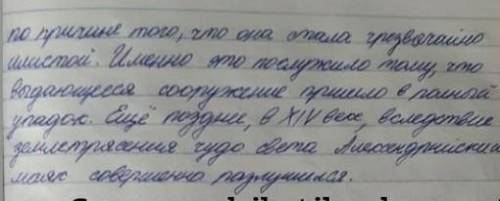 по причине того, что она стала чрезвычайно
илистой. Именно это послужило тому, что
выдающееся сооружение пришло в полный
упадок. Ещё позднее, в XIV веке, вследствие
землетрясения чудо света Александрийский
маяк совершенно разрушился.